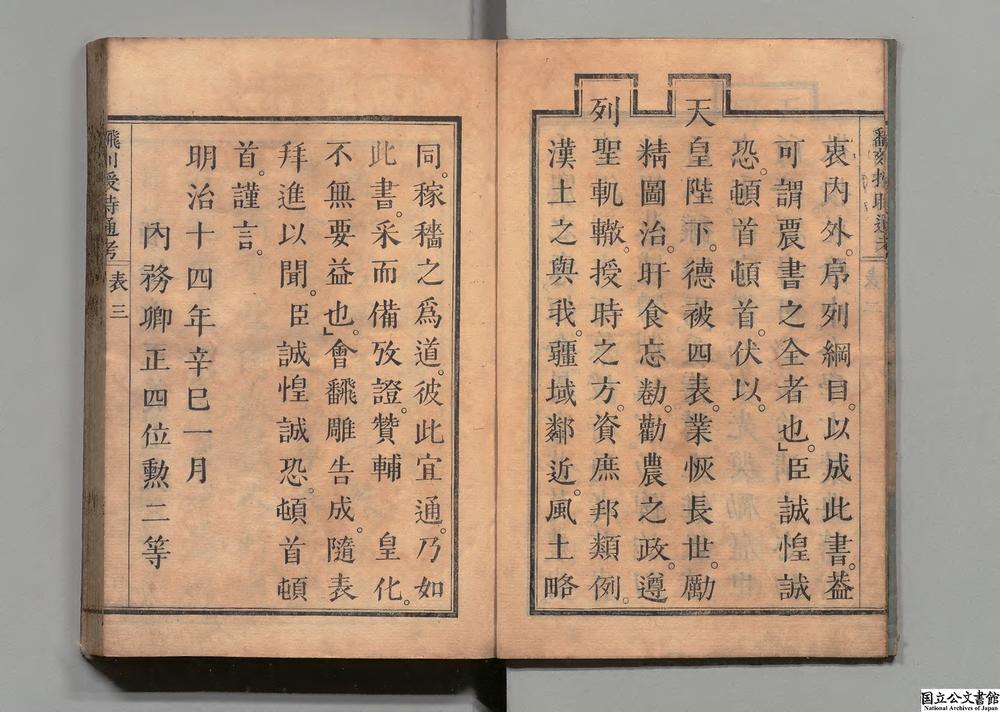 衷內外。序列綱目。以成此書。葢
可謂農書之全者也。」臣誠惶誠
恐。頓首頓首。伏以。
天皇陛下。德被四表。業恢長世。勵
精圖治。旰食忘勌。勸農之政。遵
列聖軌轍。授時之方。資庶邦類例。
漢土之與我。疆域鄰近。風土略
同。稼穡之爲道。彼此宜通。乃如
此書。采而備攷證。贊輔 皇化。
不無要益也。」會飜雕告成。隨表
拜進以聞。臣誠惶誠恐。頓首頓
首。謹言。
明治十四年辛巳一月
內務卿正四位勳二等
飜刻授時通考 表 三
国立公文書館
National Archives of Japan